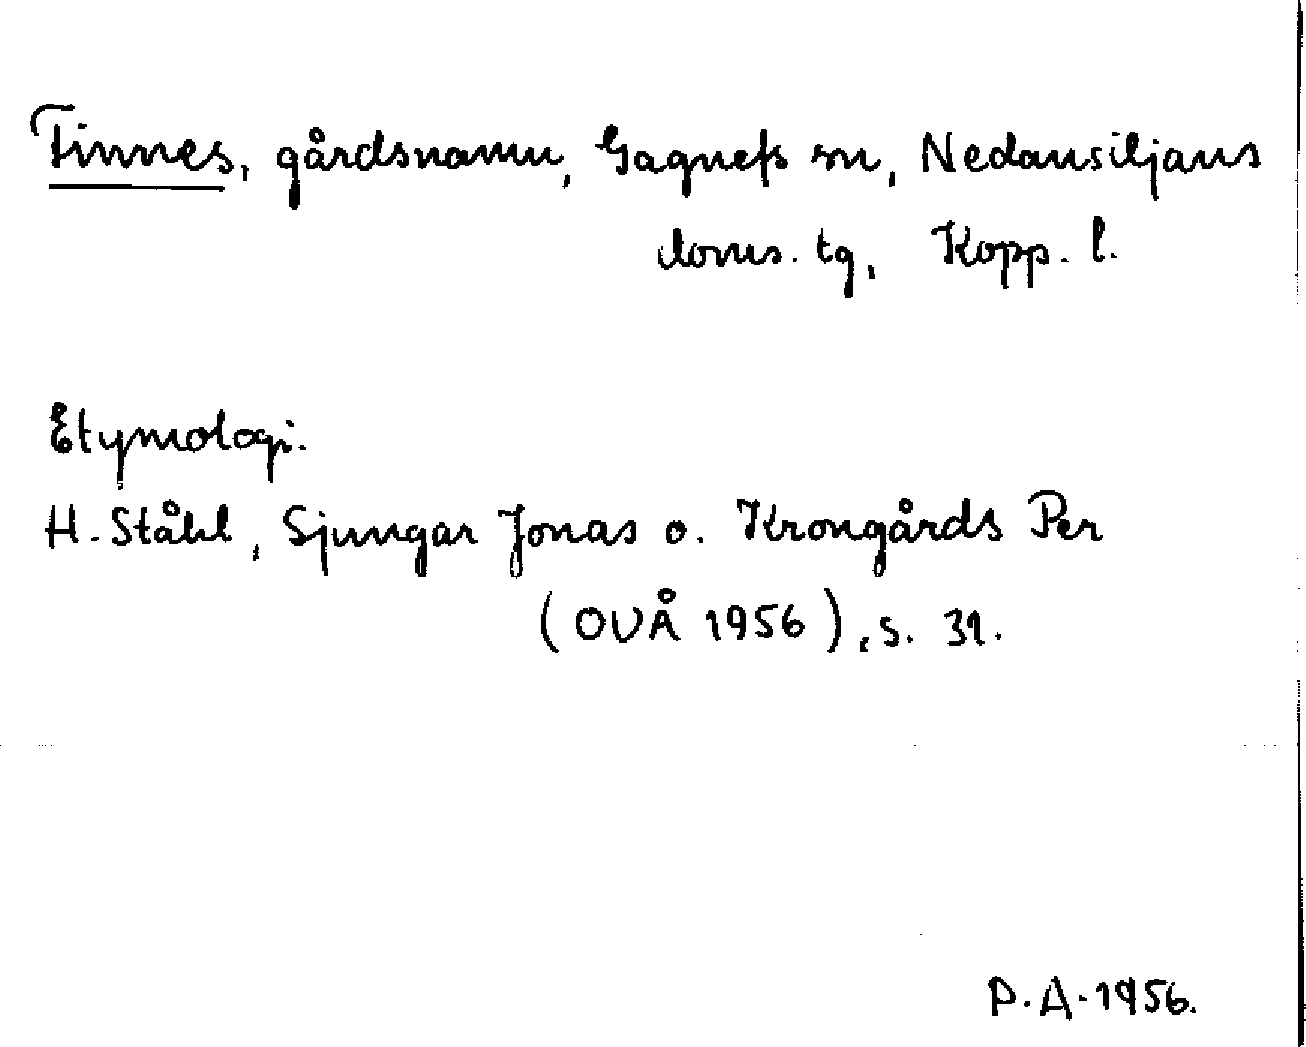 Finnes, gårdsnamn, Gagnefs sn, Nedansiljans
doms. tg, Kopp. l.
Etymologi.
H. Ståhl, Sjungar Jonas o. Krongårds Per
(OUÅ 1956), s. 31.
P.A. 1956.